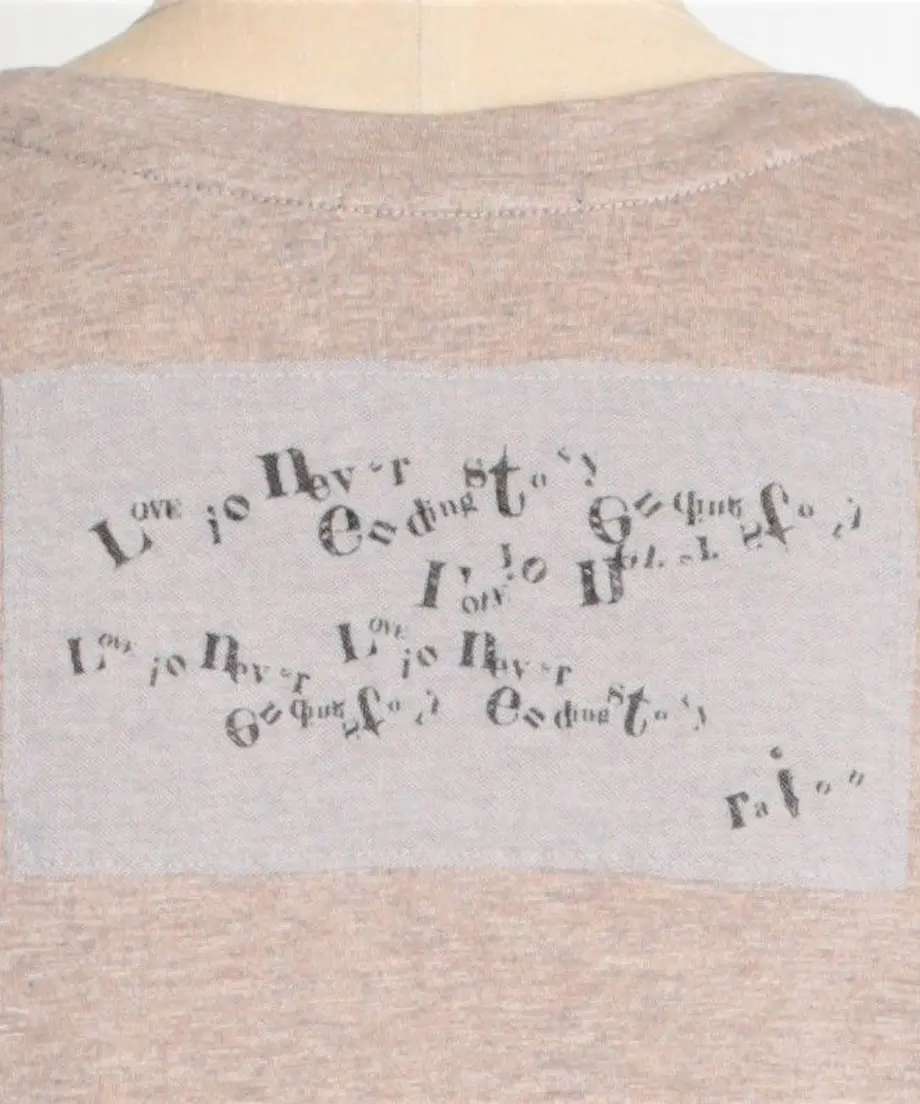 Love is never
ending story ending story
Love is never
Love is never Love is never
ending story ending story